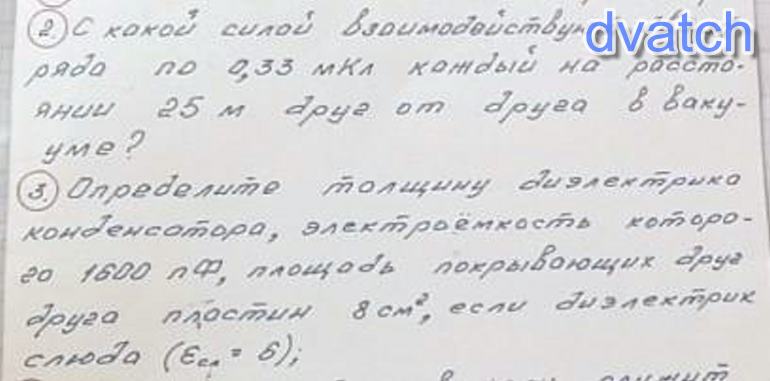 dvatch
2. С какой силой взаимодейству
ряда по 0,33 мКл каждый на рассто-
янии 25 м друг от друга в ваку-
уме?
3. Определите толщину диэлектрика
конденсатора, электроёмкость которо-
го 1600 пФ, площадь покрывающих друг
друга пластин 8 см², если диэлектрик
слюда (εсл = 6);